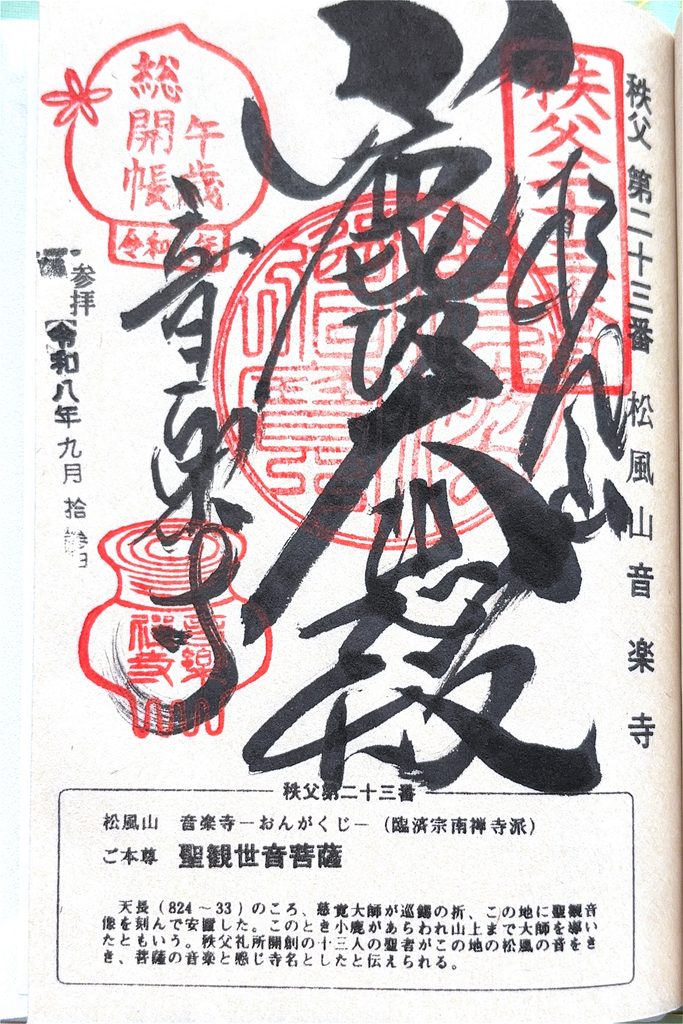 秩父 第二十三番 松風山 音楽寺
秩父二十三番
松風山
音楽寺
総開帳
午歳
令和 年
参拝
令和八年 九月 拾
音楽寺
秩父第二十三番
松風山 音楽寺－おんがくじ－（臨済宗南禅寺派）
ご本尊 聖観世音菩薩
天長(824～33)のころ、慈覚大師が巡錫の折、この地に聖観音
像を刻んで安置した。このとき小鹿があらわれ山上まで大師を導い
たともいう。秩父札所開創の十三人の聖者がこの地の松風の音をき
き、菩薩の音楽と感じ寺名としたと伝えられる。